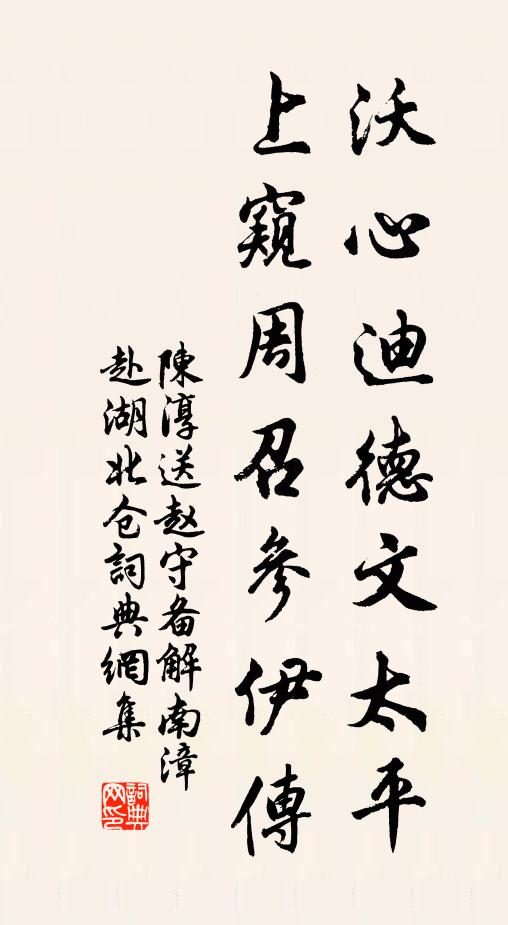 沃心迪德文太平
上窺周召參伊傅
陳淳送赵守备解南漳
赴湖北仓詞典網集
詞典网印